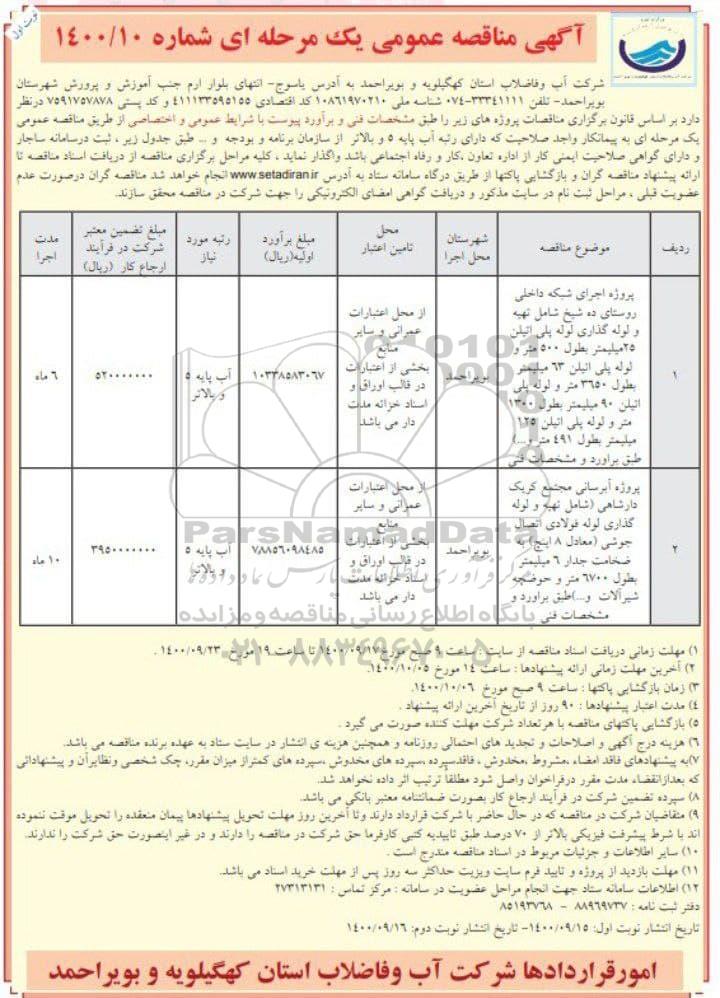 نوبت اول
آگهی مناقصه عمومی یک مرحله ای شماره ۱۴۰۰/۱۰
شرکت آب وفاضلاب استان کهگیلویه و بویراحمد به آدرس یاسوج- انتهای بلوار ارم جنب آموزش و پرورش شهرستان
بویراحمد- تلفن ۳۳۳۴۱۱۱۱-۰۷۴ شناسه ملی ۱۰۸۶۱۹۷۰۲۱۰ کد اقتصادی ۴۱۱۱۳۳۵۹۵۱۵۵ و کد پستی ۷۵۹۱۷۵۷۸۷۸ درنظر
دارد بر اساس قانون برگزاری مناقصات پروژه های زیر را طبق مشخصات فنی و برآورد پیوست با شرایط عمومی و اختصاصی از طریق مناقصه عمومی
یک مرحله ای به پیمانکار واجد صلاحیت که دارای رتبه آب پایه ۵ و بالاتر از سازمان برنامه و بودجه و ... طبق جدول زیر ، ثبت درسامانه ساجار
و دارای گواهی صلاحیت ایمنی کار از اداره تعاون ،کار و رفاه اجتماعی باشد واگذار نماید ، کلیه مراحل برگزاری مناقصه از دریافت اسناد مناقصه تا
ارائه پیشنهاد مناقصه گران و بازگشایی پاکتها از طریق درگاه سامانه ستاد به آدرس www.setadiran.ir انجام خواهد شد مناقصه گران درصورت عدم
عضویت قبلی ، مراحل ثبت نام در سایت مذکور و دریافت گواهی امضای الکترونیکی را جهت شرکت در مناقصه محقق سازند.
ردیف
موضوع مناقصه
شهرستان
محل اجرا
محل
تامین اعتبار
مبلغ برآورد
اولیه(ریال)
رتبه مورد
نیاز
مبلغ تضمین معتبر
شرکت در فرآیند
ارجاع کار (ریال)
مدت
اجرا
۱
پروژه اجرای شبکه داخلی
روستای ده شیخ شامل تهیه
و لوله گذاری لوله پلی اتیلن
۲۵میلیمتر بطول ۵۰۰ متر و
لوله پلی اتیلن ۶۳ میلیمتر
بطول ۳۶۵۰ متر و لوله پلی
اتیلن ۹۰ میلیمتر بطول ۱۳۰۰
متر و لوله پلی اتیلن ۱۲۵
میلیمتر بطول ۴۹۱ متر و...)
طبق براورد و مشخصات فنی
بویراحمد
از محل اعتبارات
عمرانی و سایر
منابع
بخشی از اعتبارات
در قالب اوراق و
اسناد خزانه مدت
دار می باشد
۱۰۳۳۸۵۸۳۰۶۷
آب پایه ۵
و بالاتر
۵۲۰۰۰۰۰۰۰
۶ ماه
۲
پروژه آبرسانی مجتمع کریک
دارشاهی (شامل تهیه و لوله
گذاری لوله فولادی اتصال
جوشی (معادل ۸ اینچ) به
ضخامت جدار ۶ میلیمتر
بطول ۶۷۰۰ متر و حوضچه
شیرآلات و...)طبق براورد و
مشخصات فنی
بویراحمد
از محل اعتبارات
عمرانی و سایر
منابع
بخشی از اعتبارات
در قالب اوراق و
اسناد خزانه مدت
دار می باشد
۷۸۸۵۶۰۹۸۴۸۵
آب پایه ۵
و بالاتر
۳۹۵۰۰۰۰۰۰۰
۱۰ ماه
ParsNamadData
پایگاه اطلاع رسانی مناقصه و مزایده
۰۲۱-۸۸۳۴۹۶۷۰-۵
۱) مهلت زمانی دریافت اسناد مناقصه از سایت : ساعت ۹ صبح مورخ۱۴۰۰/۰۹/۱۷ تا ساعت ۱۹ مورخ ۱۴۰۰/۰۹/۲۳ .
۲) آخرین مهلت زمانی ارائه پیشنهادها : ساعت ۱۴ مورخ ۱۴۰۰/۱۰/۰۵.
۳) زمان بازگشایی پاکتها : ساعت ۹ صبح مورخ ۱۴۰۰/۱۰/۰۶.
۴) مدت اعتبار پیشنهادها : ۹۰ روز از تاریخ آخرین ارائه پیشنهاد .
۵) بازگشایی پاکتهای مناقصه با هرتعداد شرکت مهلت کننده صورت می گیرد .
۶) هزینه درج آگهی و اصلاحات و تجدید های احتمالی روزنامه و همچنین هزینه ی انتشار در سایت ستاد به عهده برنده مناقصه می باشد.
۷)به پیشنهادهای فاقد امضاء ،مشروط ،مخدوش ، فاقدسپرده ،سپرده های مخدوش ،سپرده های کمتراز میزان مقرر، چک شخصی ونظایرآن و پیشنهاداتی
که بعدازانقضاء مدت مقرر درفراخوان واصل شود مطلقا ترتیب اثر داده نخواهد شد.
۸) سپرده تضمین شرکت در فرآیند ارجاع کار بصورت ضمانتنامه معتبر بانکی می باشد.
۹) متقاضیان شرکت در مناقصه که در حال حاضر با شرکت قرارداد دارند وتا آخرین روز مهلت تحویل پیشنهادها پیمان منعقده را تحویل موقت ننموده
اند با شرط پیشرفت فیزیکی بالاتر از ۷۰ درصد طبق تاییدیه کتبی کارفرما حق شرکت در مناقصه را دارند و در غیر اینصورت حق شرکت را ندارند.
۱۰) سایر اطلاعات و جزئیات مربوط در اسناد مناقصه مندرج است .
۱۱) مهلت بازدید از پروژه و تایید فرم سایت ویزیت حداکثر سه روز پس از مهلت خرید اسناد می باشد.
۱۲) اطلاعات سامانه ستاد جهت انجام مراحل عضویت در سامانه : مرکز تماس : ۲۷۳۱۳۱۳۱
دفتر ثبت نامه : ۸۸۹۶۹۷۳۷ – ۸۵۱۹۳۷۶۸
تاریخ انتشار نوبت اول: ۱۴۰۰/۰۹/۱۵- تاریخ انتشار نوبت دوم: ۱۴۰۰/۰۹/۱۶
امورقراردادها شرکت آب وفاضلاب استان کهگیلویه و بویراحمد